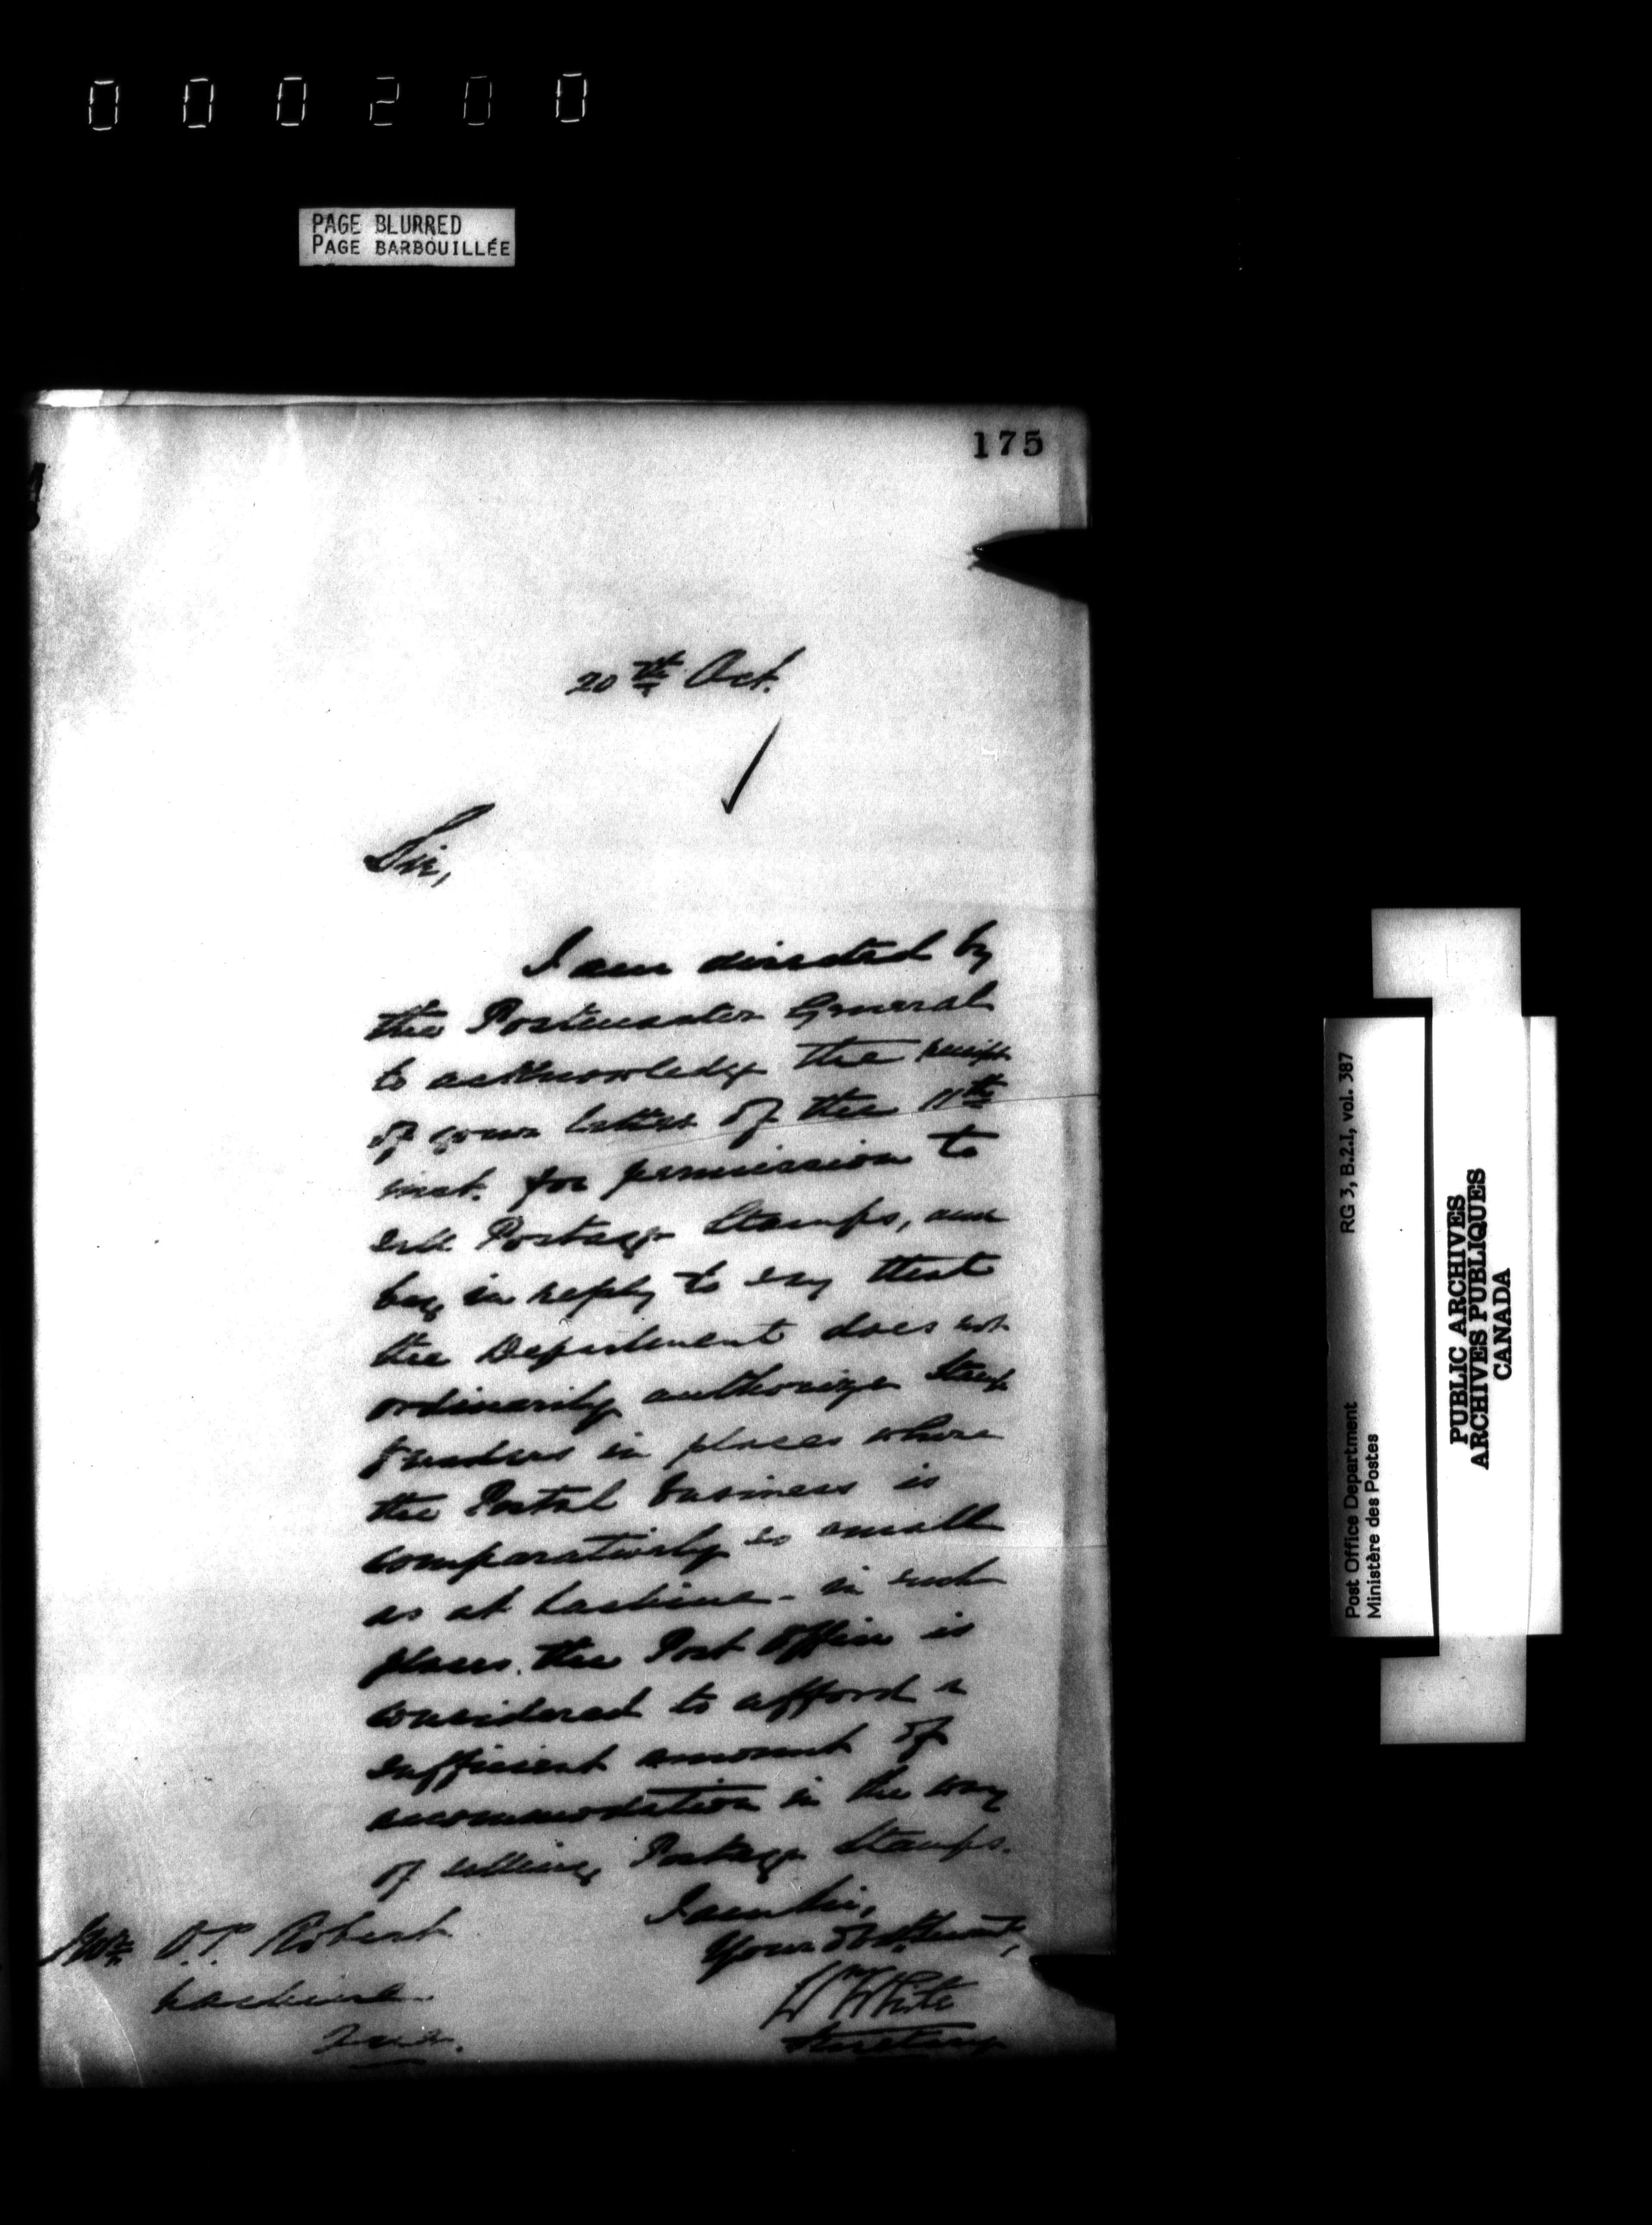 000200
PAGE BLURRED
PAGE BARBOUILLÉE
175
20th Oct.
Sir,
I am directed by
the Postmaster General
to acknowledge the receipt
of your letter of the 11th
inst. for permission to
sell Postage Stamps, and
beg in reply to say that
the Department does not
ordinarily authorize Stamp
Vendors in places where
the Postal business is
comparatively so small
as at Lachine - in such
places the Post Office is
considered to afford a
sufficient amount of
accommodation in the way
of selling Postage Stamps.
I am Sir,
Your Ob. Servant,
Wm White
Secretary
Mr O.P. Robert
Lachine
Que.
Post Office Department
Ministère des Postes
RG 3, B.2.I, vol. 387
PUBLIC ARCHIVES
ARCHIVES PUBLIQUES
CANADA